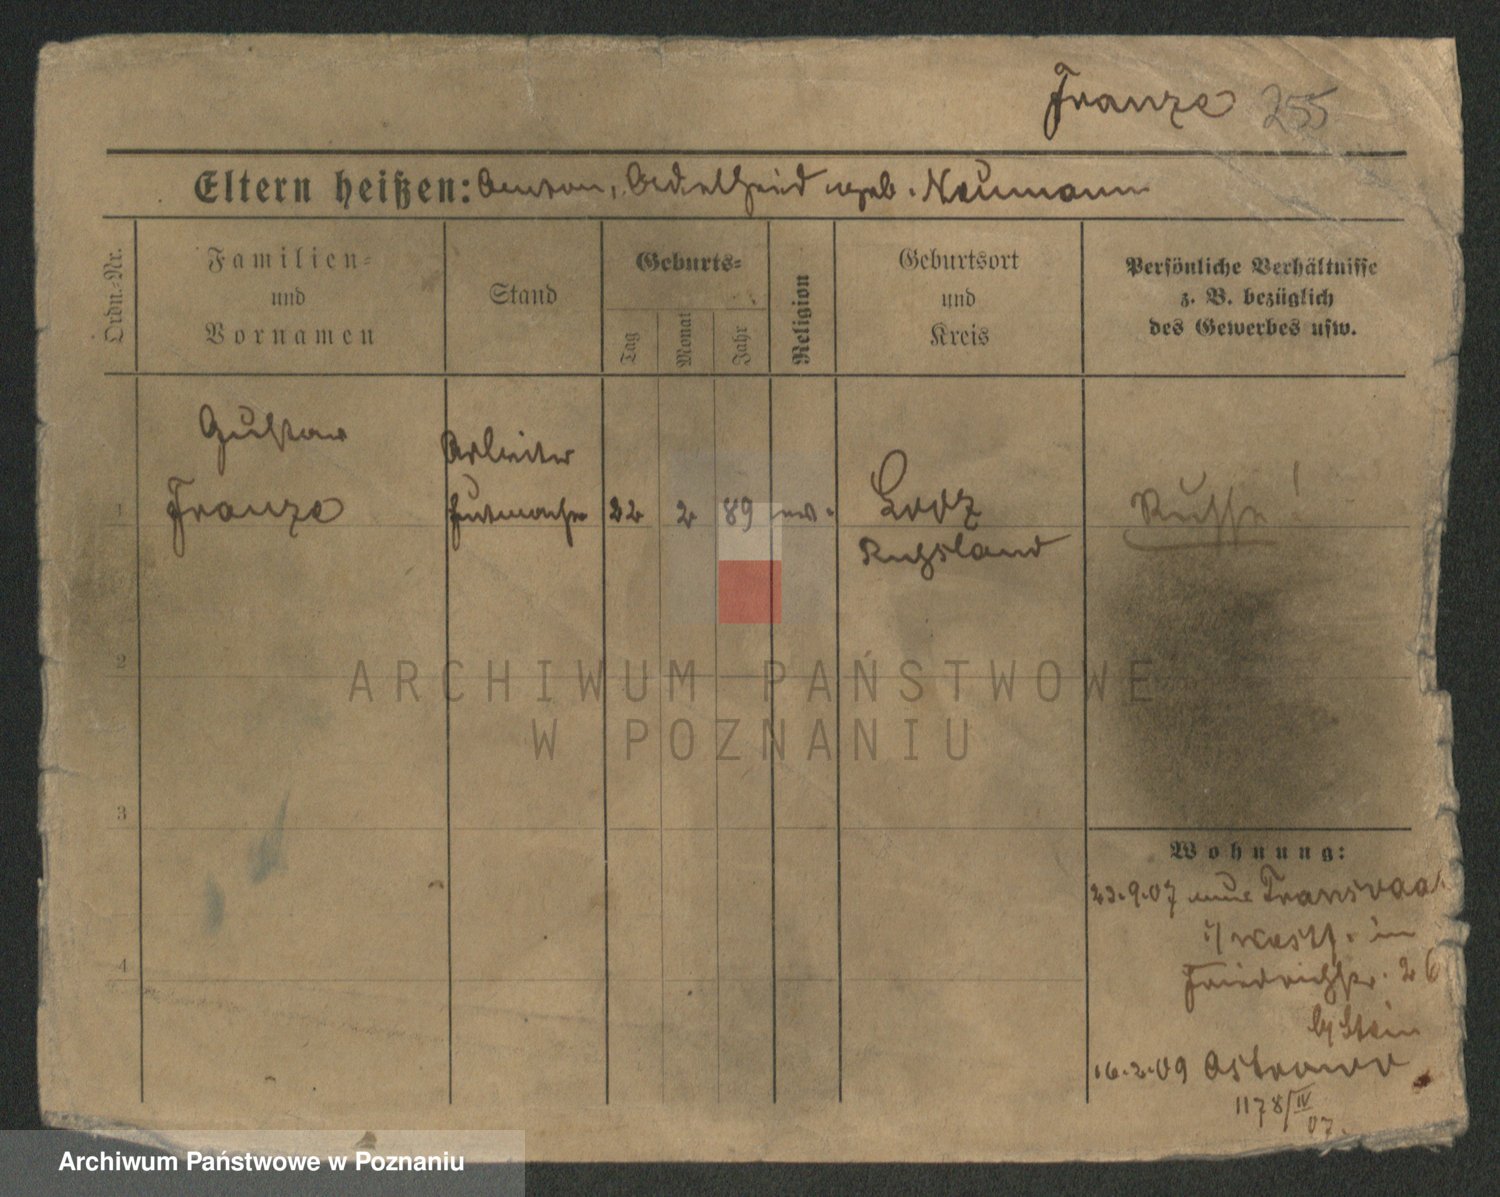 Franze 255
Eltern heißen: Anton, Adelheid geb. Neumann
Ordn.-Nr.
Familien-
und
Vornamen
Stand
Geburts-
Tag
Monat
Jahr
Religion
Geburtsort
und
Kreis
Persönliche Verhältnisse
z. B. bezüglich
des Gewerbes usw.
Gustav
Franze
Arbeiter
Hutmacher
1
22 2 89 ev.
Lodz
Russland
Russe!
2
3
4
Wohnung:
23.9.07 Transvaal
i/Westf.
Friedrichstr. 26
b/Stein
16.2.09 Ostrowo
1178/IV
07.
ARCHIWUM PAŃSTWOWE
W POZNANIU
Archiwum Państwowe w Poznaniu